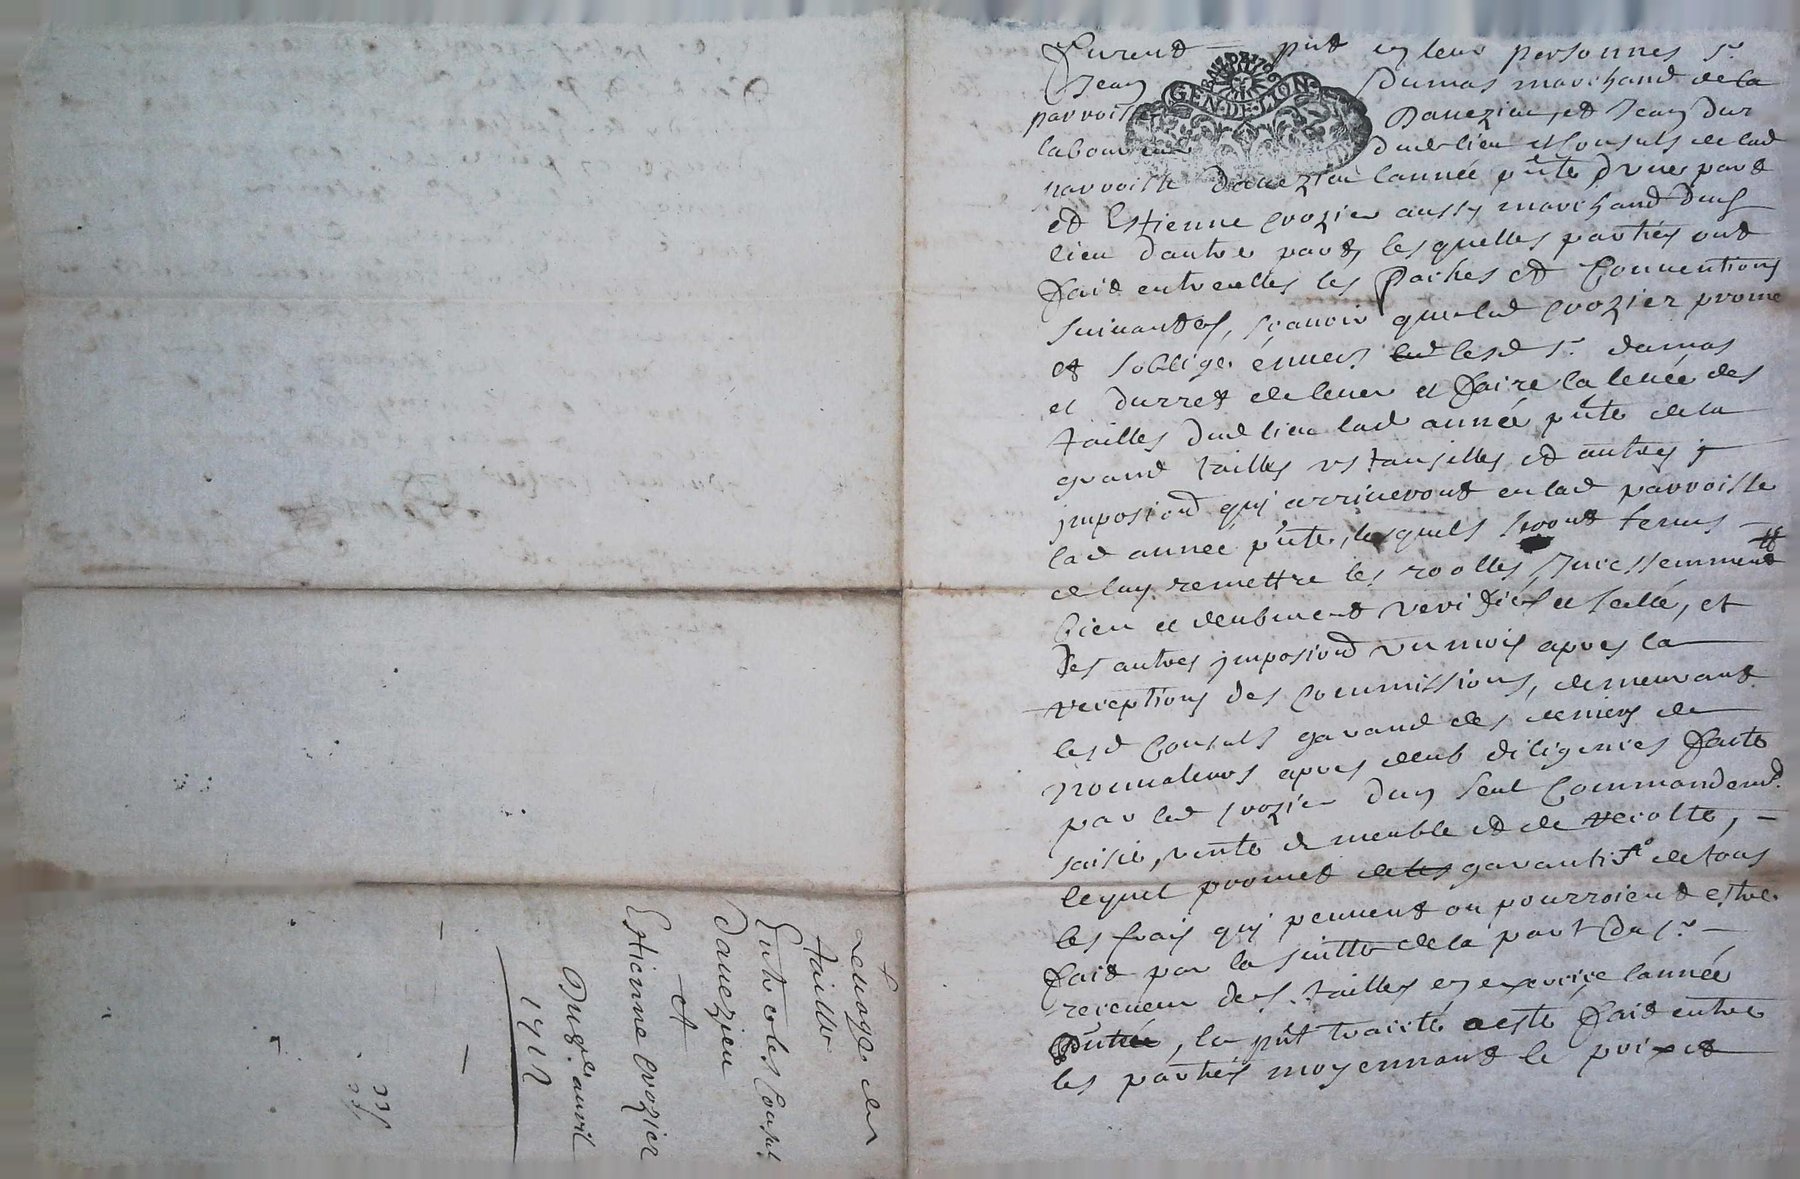 furent pnt en leur personnes sr
Jean Dumas marchand de la
parroisse Davezieu, et Jean Dur
laboureur dud lieu et consuls de lad
parroisse Davezieu lannée pnte, dvne part
et Estienne Crozier aussy marchand dud
lieu dautre part, lesquelles parties ont
faict entre elles les Paches et Conuentions
suiuantes, scauoir que led Crozier prome
et soblige énuers led lesd sr dumas
et durret de leuer et faire la leueé des
tailles dud lieu lad année pnte de la
grand tailles vstansilles et autres
imposiond qui arriueront en lad parroisse
lad année pnte, lesquels seront tenus
de luy remettre les roolles
bien et deubment veriffiés et sellé, et
des autres jmposiond vn mois apres la
receptions des Commissions, demeurant
lesd Consuls garand des deniers de
nonualeurs apres deub diligences faite
par led Crozier dun seul Commandemt
saisie, vente de meuble et de recolte,
lequel promet de les garantir de tous
les frais qui peuuent ou pourroient estre
faict par la suitte de la part du sr
receueur des tailles en exercice lannée
pnte, le pnt traicté a esté faict entre
les parties moyennant le prix et
GEN·DE·LION
Leuage de
taille
Entre les Consuls
Davezieu
et
Estienne Crozier
Du auril
1712